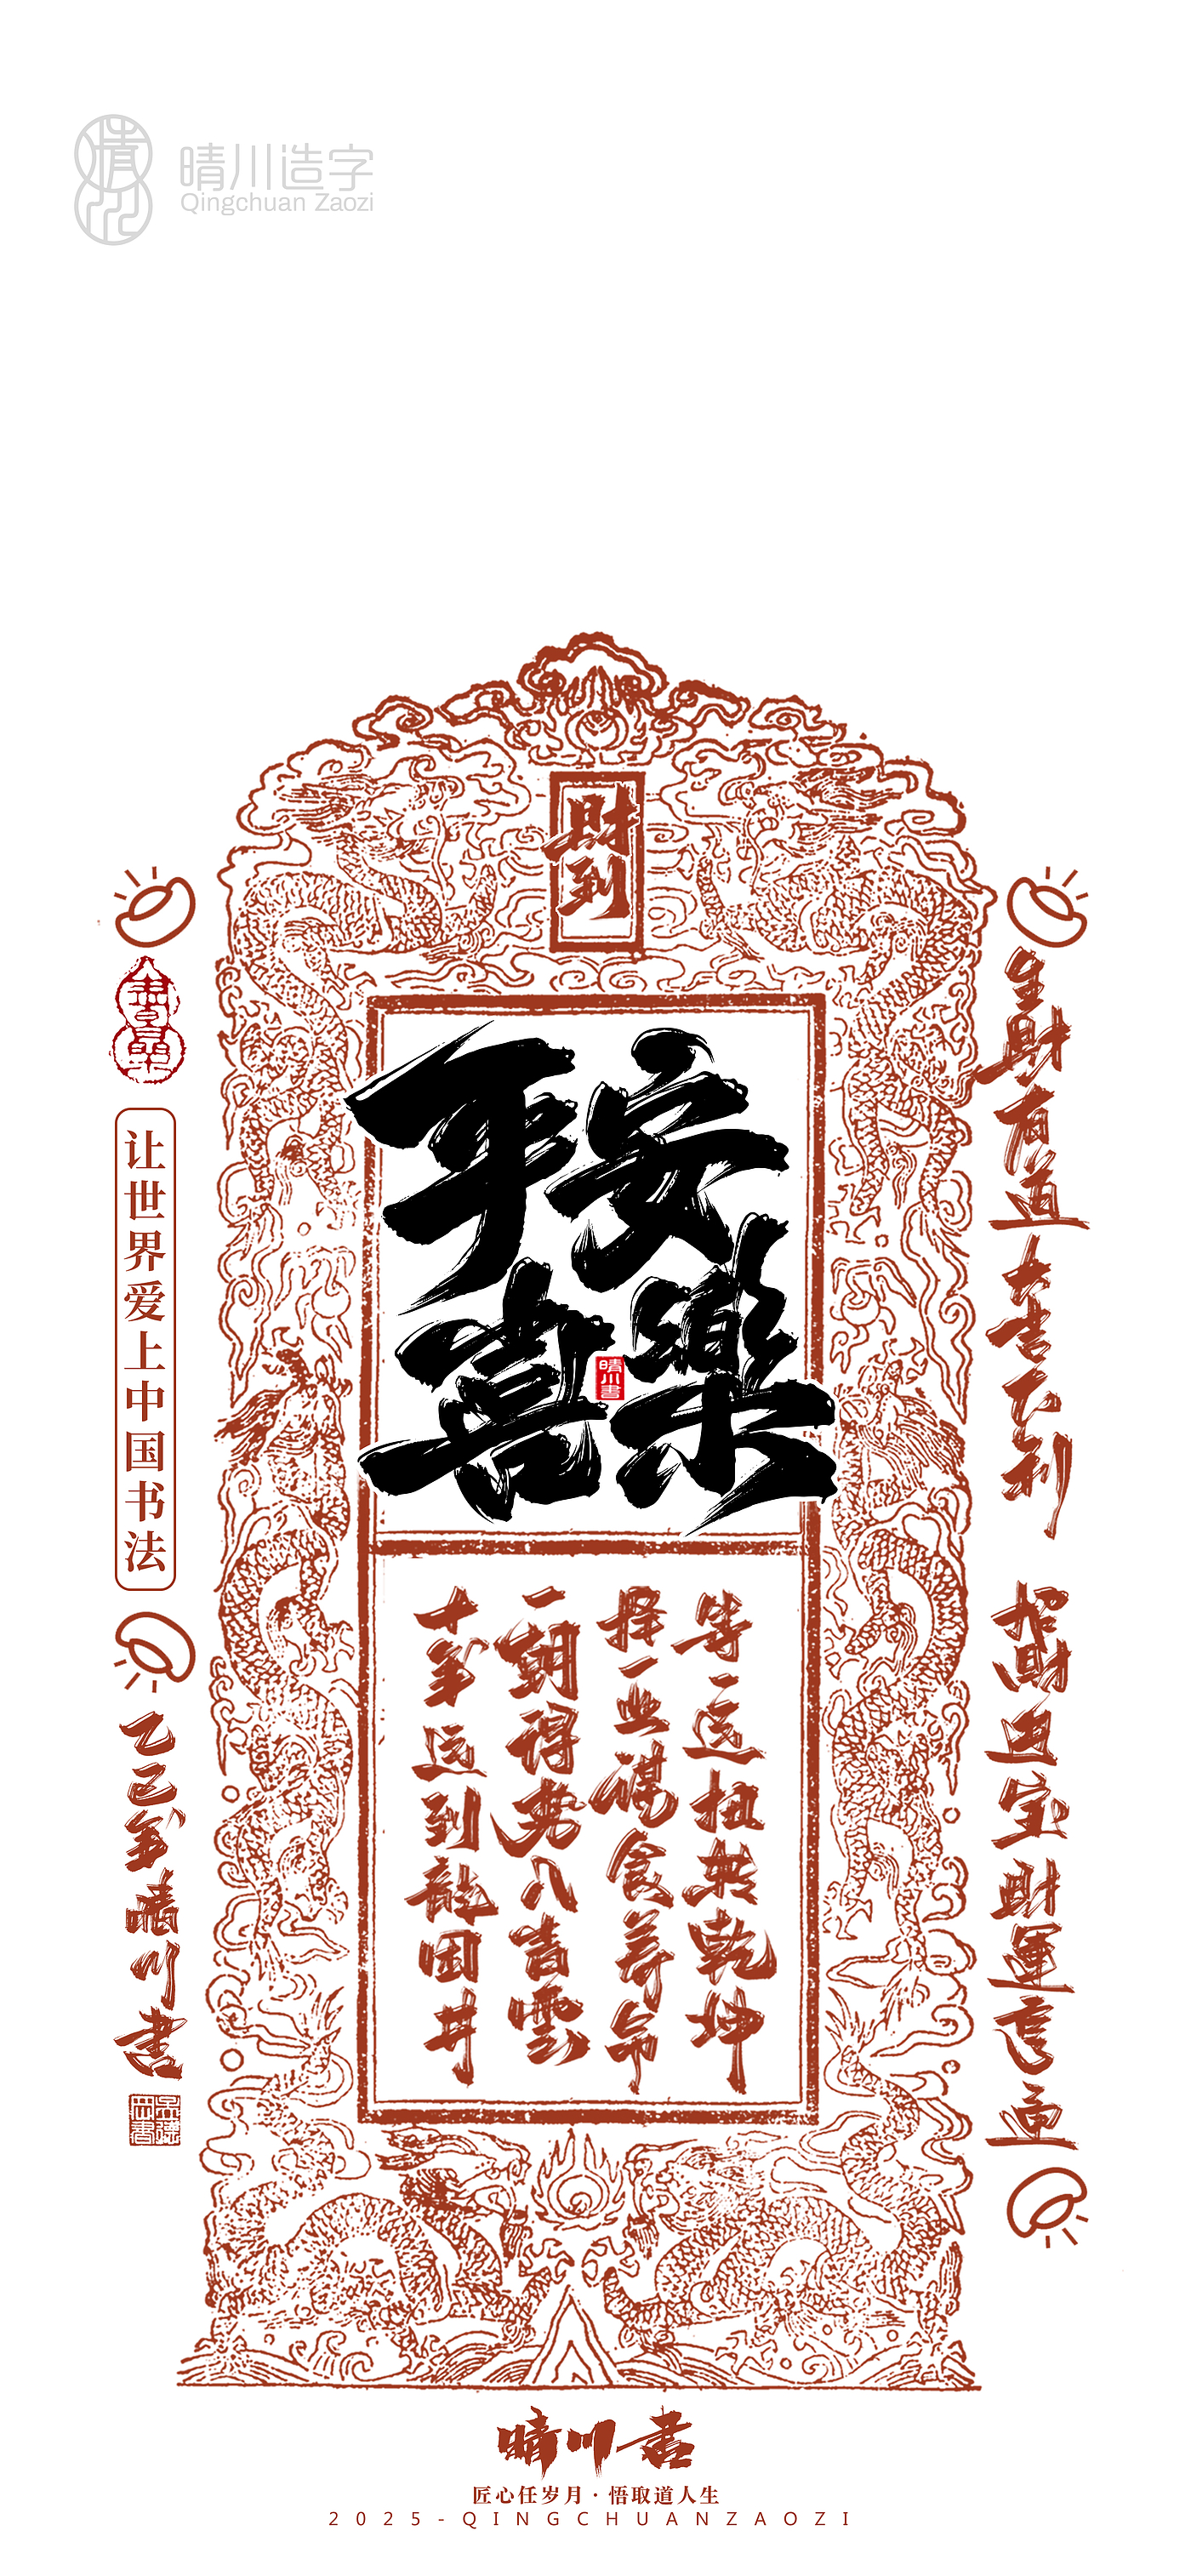 晴川造字
Qingchuan Zaozi
財到
平安
喜樂
晴川書
生財有道大吉大利
招財進宝財運亨通
十年运到龍困井
一朝得势入青雲
择一业谋食养命
等一运扭转乾坤
让世界爱上中国书法
乙巳年晴川書
晴川書
匠心任岁月·悟取道人生
2025-QINGCHUANZAOZI